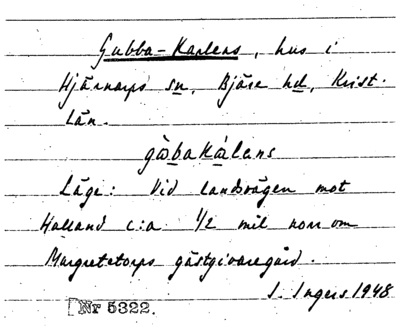 Gubba-Karlens, hus i
Hjärnarps sn, Bjäre hd, Krist.
län.
gòbakálens
Läge: Vid landsvägen mot
Halland c:a 1/2 mil norr om
Margretetorps gästgivaregård.
I. Ingers 1948
Nr 5322.